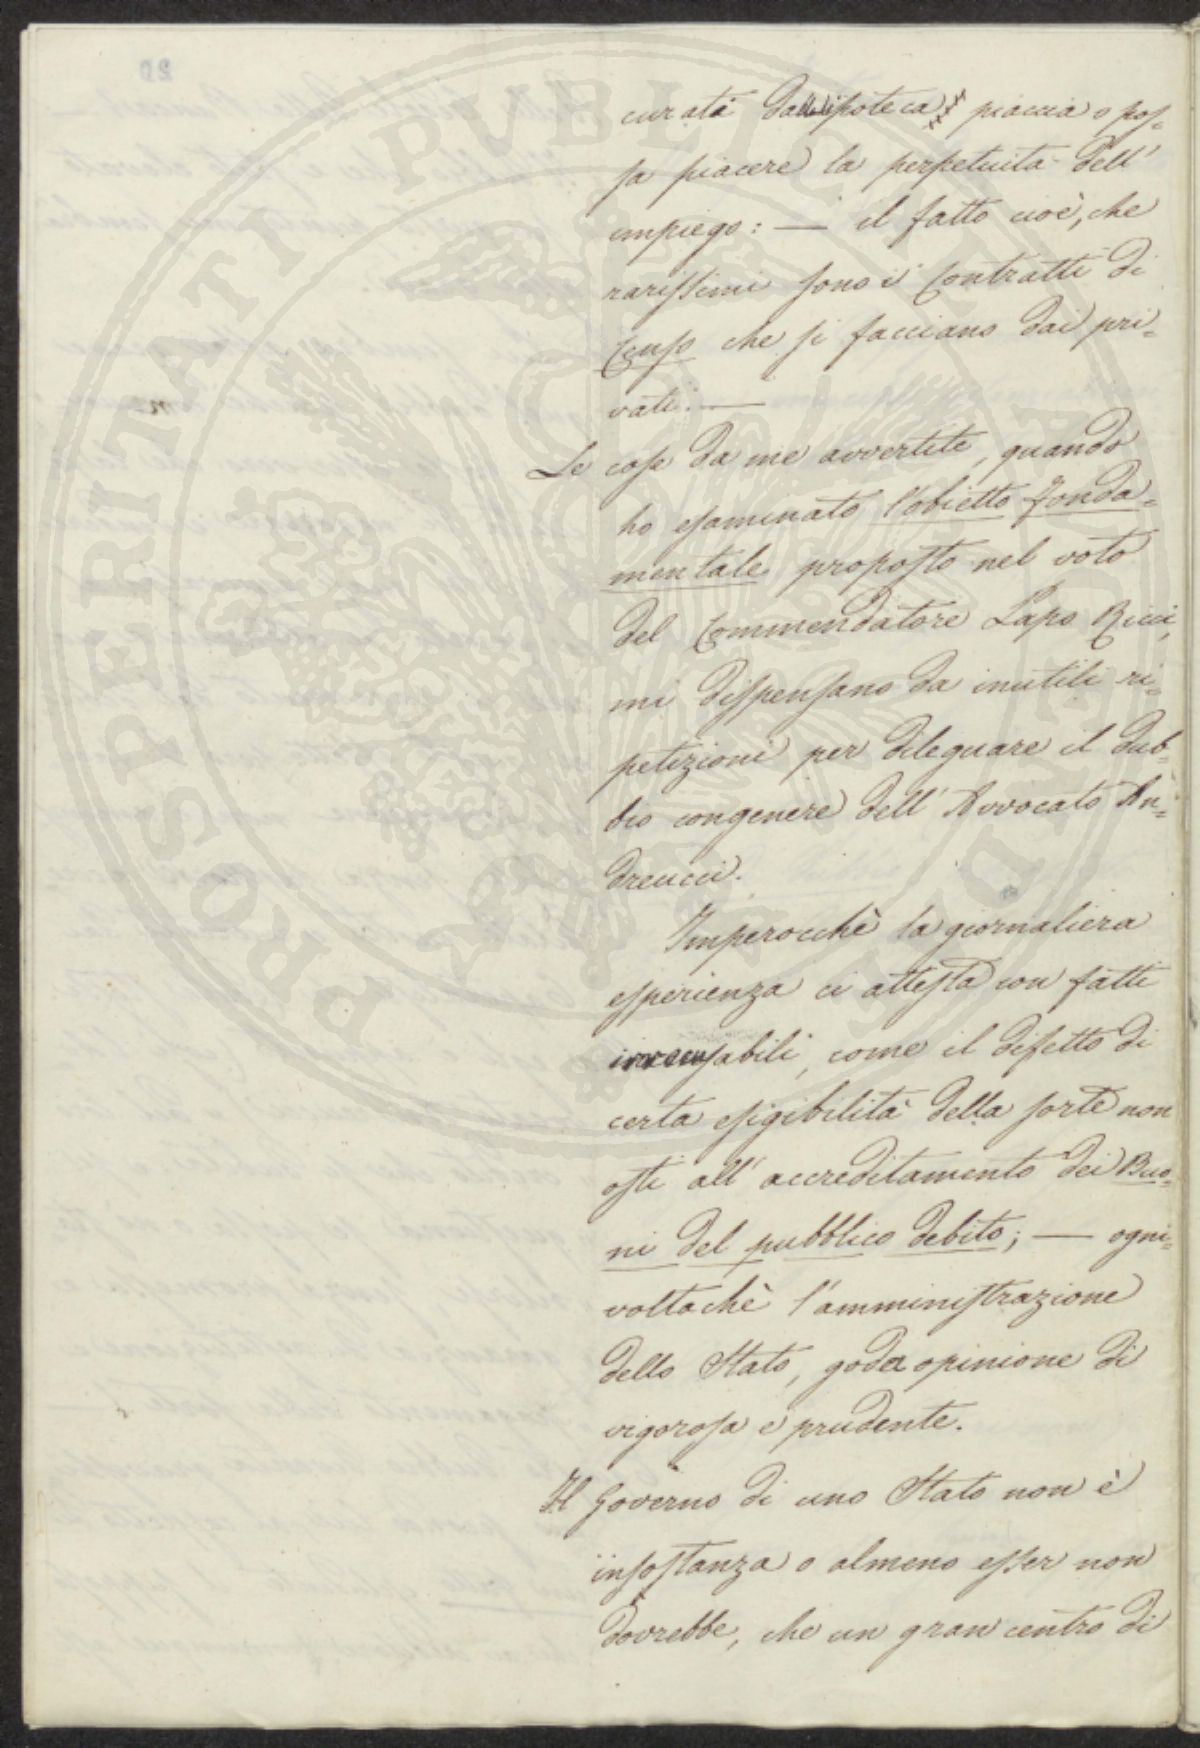 curata dall'ipoteca, piaccia o pos=
sa piacere la perpetuità dell'
impiego: — il fatto cioè, che
rarissimi sono i Contratti di
Censo che si facciano dai pri=
vati. —
Le cose da me avvertite, quando
ho esaminato l'obietto fonda=
mentale proposto nel voto
del Commendatore Lapo Ricci,
mi dispensano da inutili ri=
petizioni per dileguare il dub=
bio congenere dell'Avvocato An=
dreucci.
Imperocchè la giornaliera
esperienza ci attesta con fatti
irrecusabili, come il difetto di
certa esigibilità della sorte non
osti all'accreditamento dei Buo=
ni del pubblico debito; — ogni=
voltachè l'amministrazione
dello Stato, goda opinione di
vigorosa e prudente.
Il Governo di uno Stato non è
insostanza o almeno esser non
dovrebbe, che un gran centro di
PROSPERITATI PVBLICAE